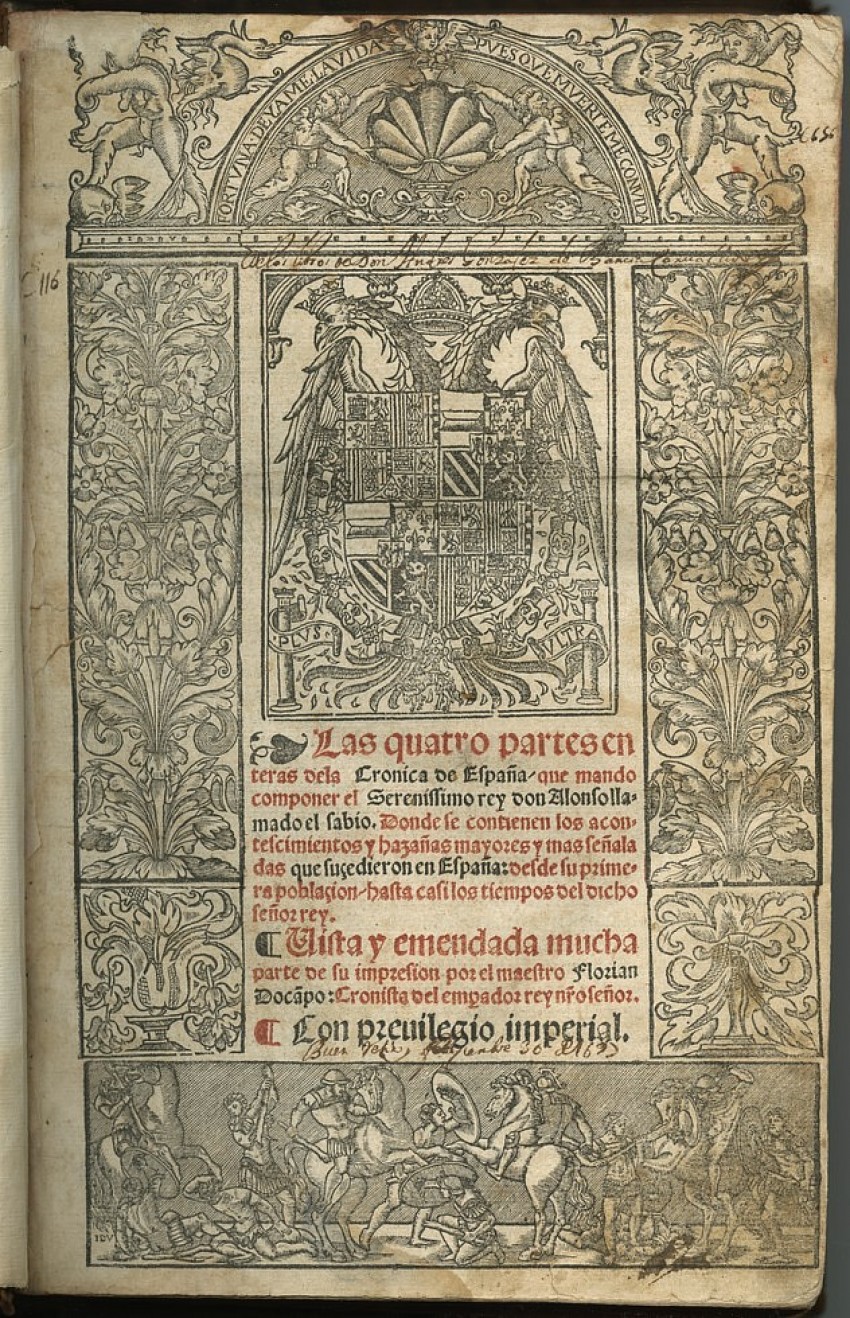 FORTVNA·DEXAME·LAVIDA PVESQVE MVERTE ME CONVIDA
De los libros de Don Andres Gonzalez de Barcia
116
PLVS· VLTRA
Las quatro partes en
teras dela Cronica de España/que mando
componer el Serenissimo rey don Alonso lla-
mado el sabio. Donde se contienen los acon-
tescimientos y hazañas mayores y mas señala
das que suçedieron en España: desde su prime-
ra poblaçion/hasta casi los tiempos del dicho
señor rey.
¶ Uista y emendada mucha
parte de su impresion por el maestro Florian
Docãpo: Cronista del empador rey nr̃o señor.
¶ Con preuilegio imperial.
IDV